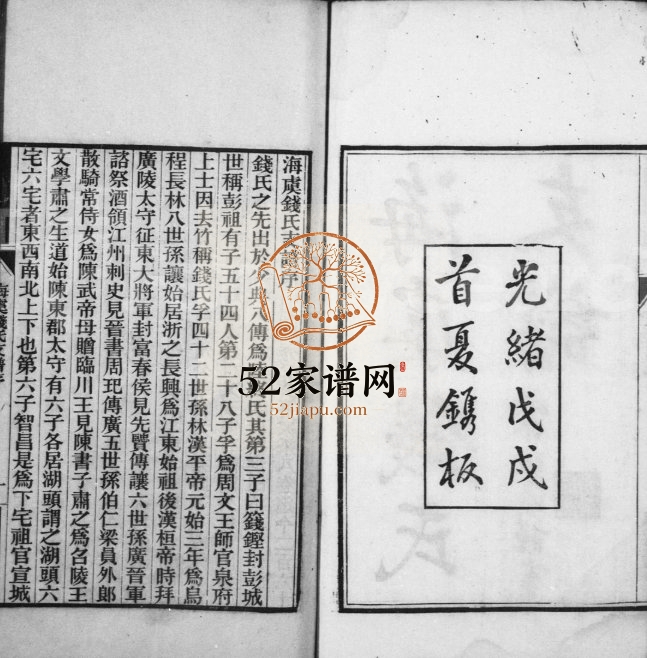 光緒戊戌
首夏鐫板
海虞錢氏支譜序
錢氏之先出於少典八傳爲籛氏其第三子曰籛鏗封彭城
世稱彭祖有子五十四人第二十八子孚爲周文王師官泉府
上士因去竹稱錢氏孚四十二世孫林漢平帝元始三年爲烏
程長林八世孫讓始居浙之長興爲江東始祖後漢桓帝時拜
廣陵太守征東大將軍封富春侯見先賢傳讓六世孫廣晉軍
諮祭酒領江州刺史見晉書周玘傳廣五世孫伯仁梁員外郎
散騎常侍女爲陳武帝母贈臨川王見陳書子肅之爲名陵王
文學肅之生道始陳東郡太守有六子各居湖頭謂之湖頭六
宅六宅者東西南北上下也第六子智昌是爲下宅祖官宣城
海虞錢氏支譜序
52家谱网
52jiapu.com